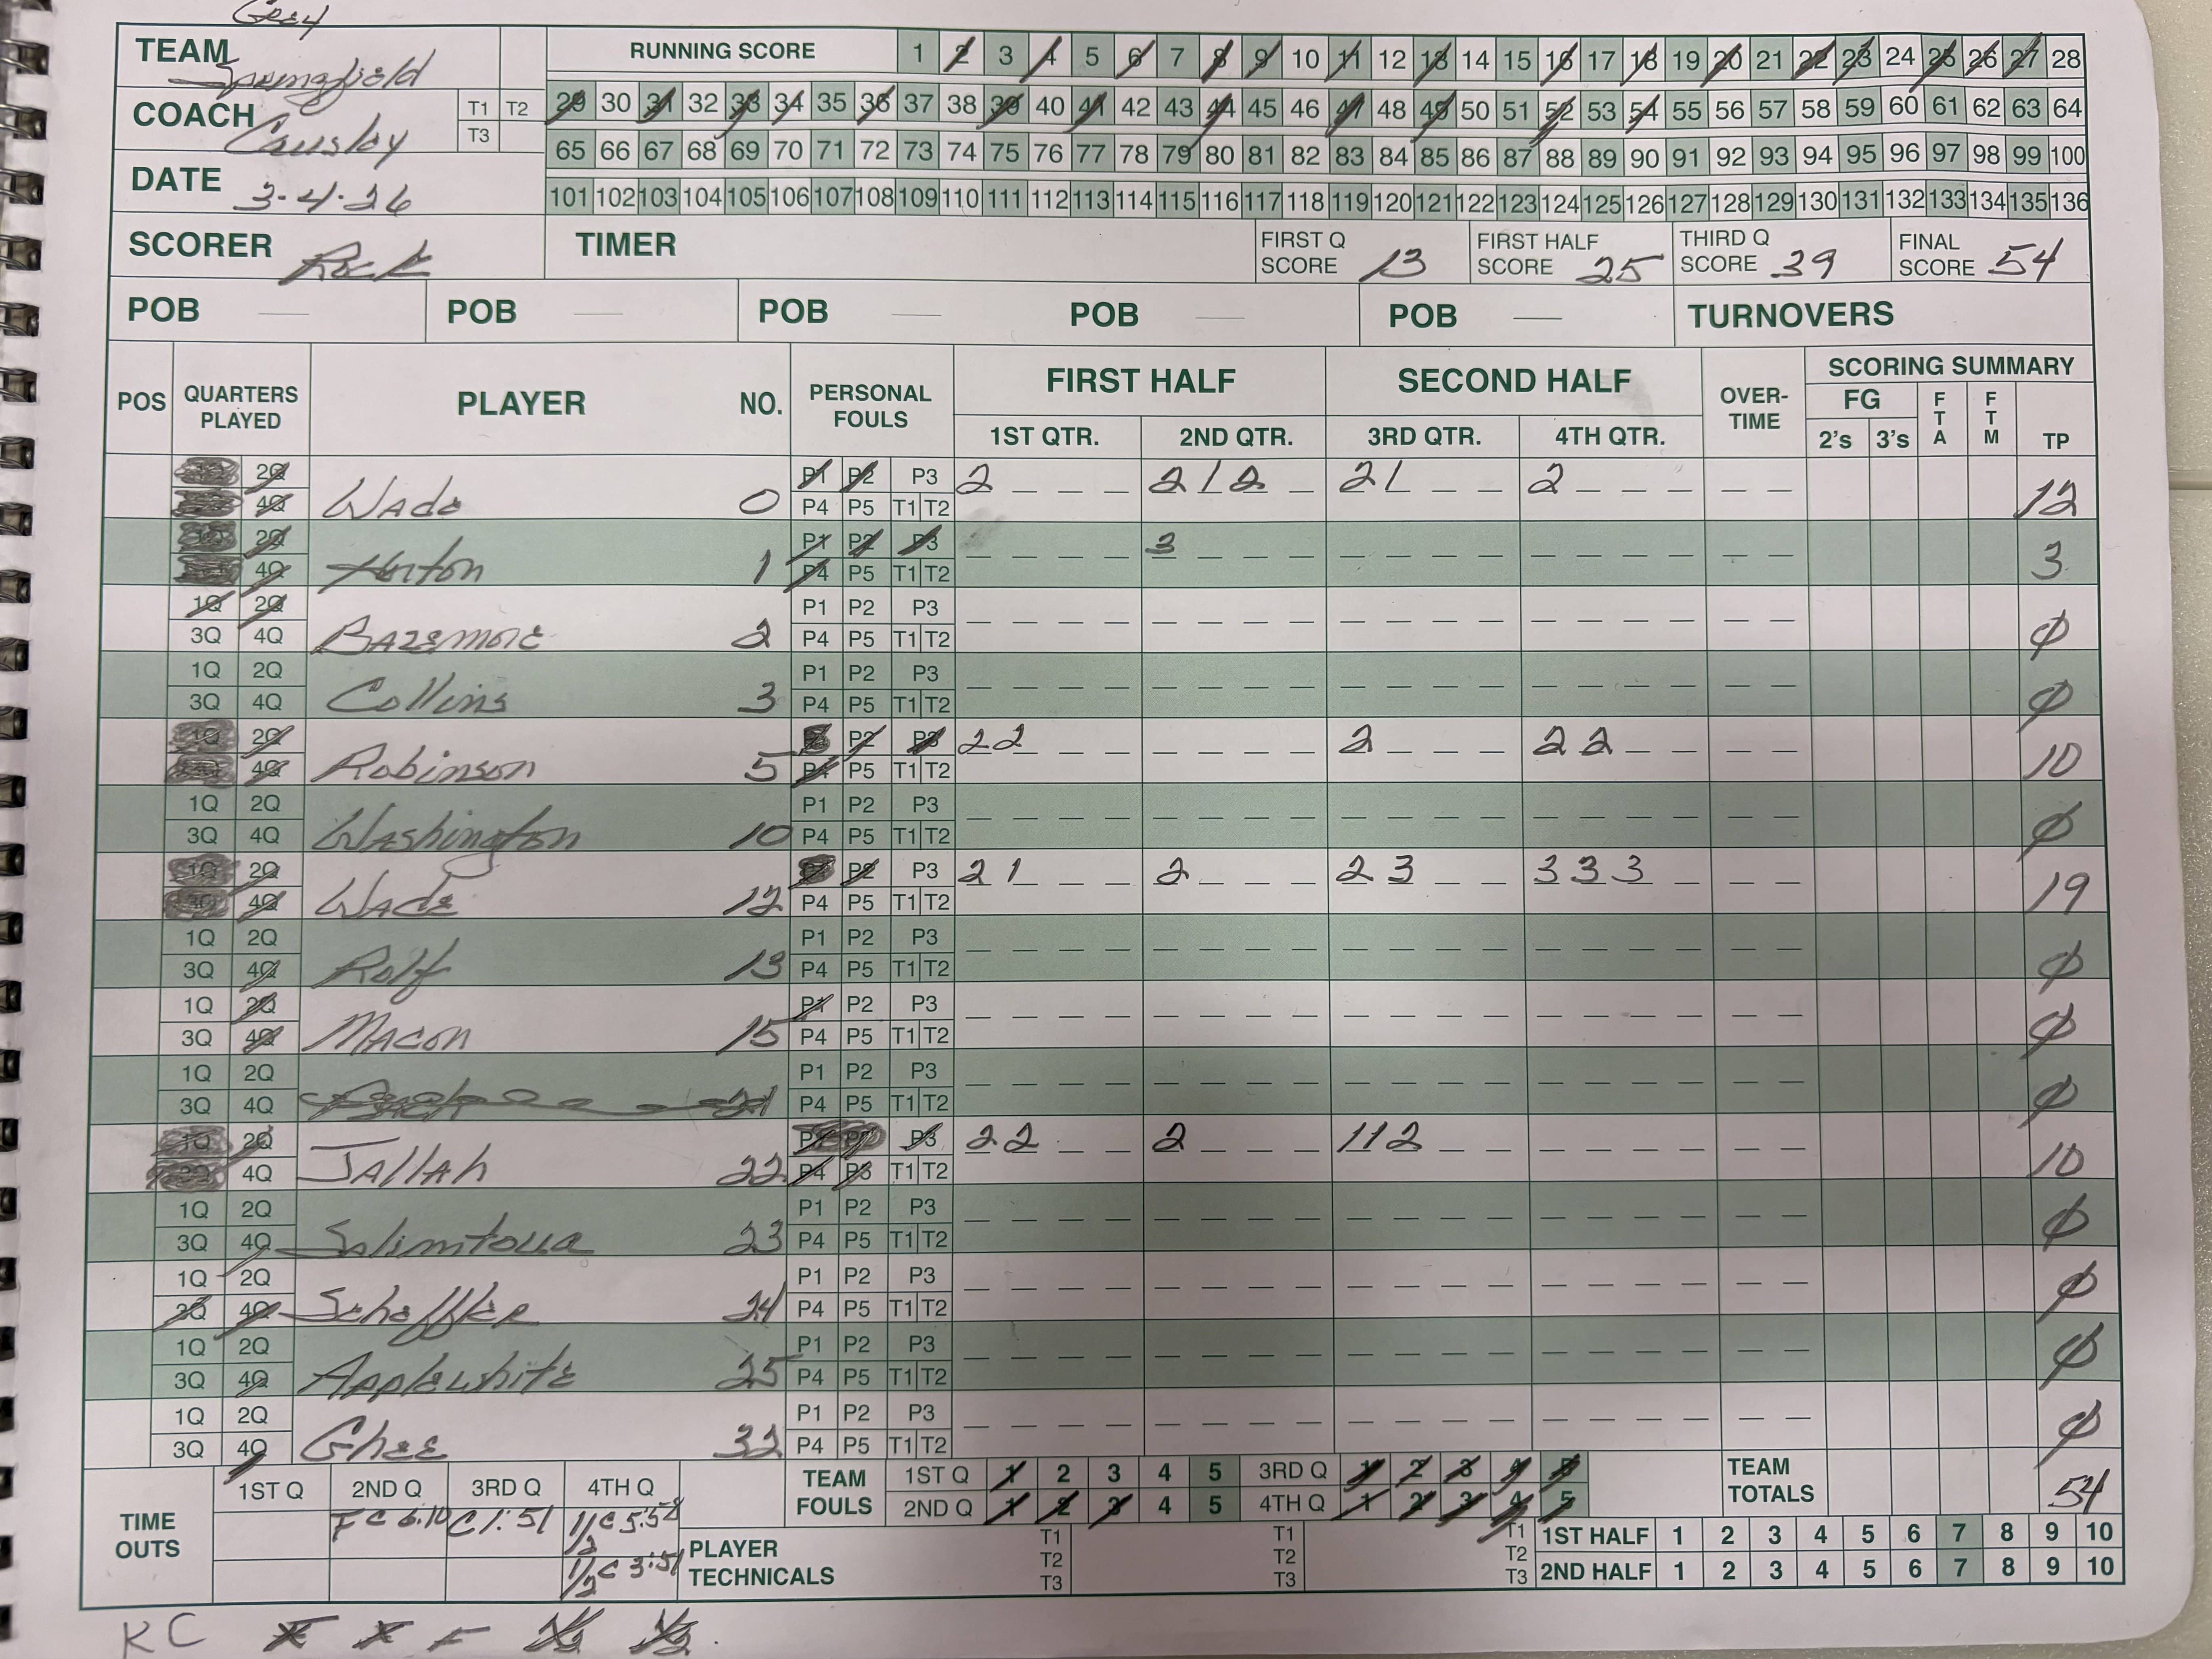 Grey
TEAM Springfield
RUNNING SCORE 1 2 3 4 5 6 7 8 9 10 11 12 13 14 15 16 17 18 19 20 21 22 23 24 25 26 27 28
COACH Causley T1 T2 T3
29 30 31 32 33 34 35 36 37 38 39 40 41 42 43 44 45 46 47 48 49 50 51 52 53 54 55 56 57 58 59 60 61 62 63 64
65 66 67 68 69 70 71 72 73 74 75 76 77 78 79 80 81 82 83 84 85 86 87 88 89 90 91 92 93 94 95 96 97 98 99 100
DATE 3-4-26
101 102 103 104 105 106 107 108 109 110 111 112 113 114 115 116 117 118 119 120 121 122 123 124 125 126 127 128 129 130 131 132 133 134 135 136
SCORER Rock TIMER FIRST Q SCORE 13 FIRST HALF SCORE 25 THIRD Q SCORE 39 FINAL SCORE 54
POB POB POB POB POB TURNOVERS
POS QUARTERS PLAYED PLAYER NO. PERSONAL FOULS FIRST HALF SECOND HALF OVER-TIME SCORING SUMMARY
1ST QTR. 2ND QTR. 3RD QTR. 4TH QTR. FG 2's 3's FTA FTM TP
2Q P1 P2 P3 2 2 1 2 2 1 2
4Q Wade 0 P4 P5 T1 T2 12
2Q P1 P2 P3 3
4Q 1 P4 P5 T1 T2 3
1Q 2Q P1 P2 P3
3Q 4Q Bazemore 2 P4 P5 T1 T2 Ø
1Q 2Q P1 P2 P3
3Q 4Q Collins 3 P4 P5 T1 T2 Ø
1Q 2Q P2 P3 2 2 2 2 2
4Q Robinson 5 P4 P5 T1 T2 10
1Q 2Q P1 P2 P3
3Q 4Q Washington 10 P4 P5 T1 T2 Ø
1Q 2Q P2 P3 2 1 2 2 3 3 3 3
3Q 4Q Wade 12 P4 P5 T1 T2 19
1Q 2Q P1 P2 P3
3Q 4Q Rolf 13 P4 P5 T1 T2 Ø
1Q 2Q P1 P2 P3
3Q 4Q Macon 15 P4 P5 T1 T2 Ø
1Q 2Q P1 P2 P3
3Q 4Q 21 P4 P5 T1 T2 Ø
1Q 2Q P1 P3 2 2 2 1 1 2
4Q Jallah 22 P4 P5 T1 T2 10
1Q 2Q P1 P2 P3
3Q 4Q 23 P4 P5 T1 T2 Ø
1Q 2Q P1 P2 P3
3Q 4Q Scheffler 24 P4 P5 T1 T2 Ø
1Q 2Q P1 P2 P3
3Q 4Q Applewhite 25 P4 P5 T1 T2 Ø
1Q 2Q P1 P2 P3
3Q 4Q Ghee 32 P4 P5 T1 T2 Ø
TIME OUTS 1ST Q 2ND Q 3RD Q 4TH Q TEAM FOULS 1ST Q 1 2 3 4 5 3RD Q 1 2 3 4 5 TEAM TOTALS 54
F C 6:10 C 1:51 1/2 C 5:58 2ND Q 1 2 3 4 5 4TH Q 1 2 3 4 5
1/2 C 3:51 PLAYER TECHNICALS T1 T2 T3 T1 T2 T3 T1 T2 T3 1ST HALF 1 2 3 4 5 6 7 8 9 10
2ND HALF 1 2 3 4 5 6 7 8 9 10
KC F F F 1/2 1/2